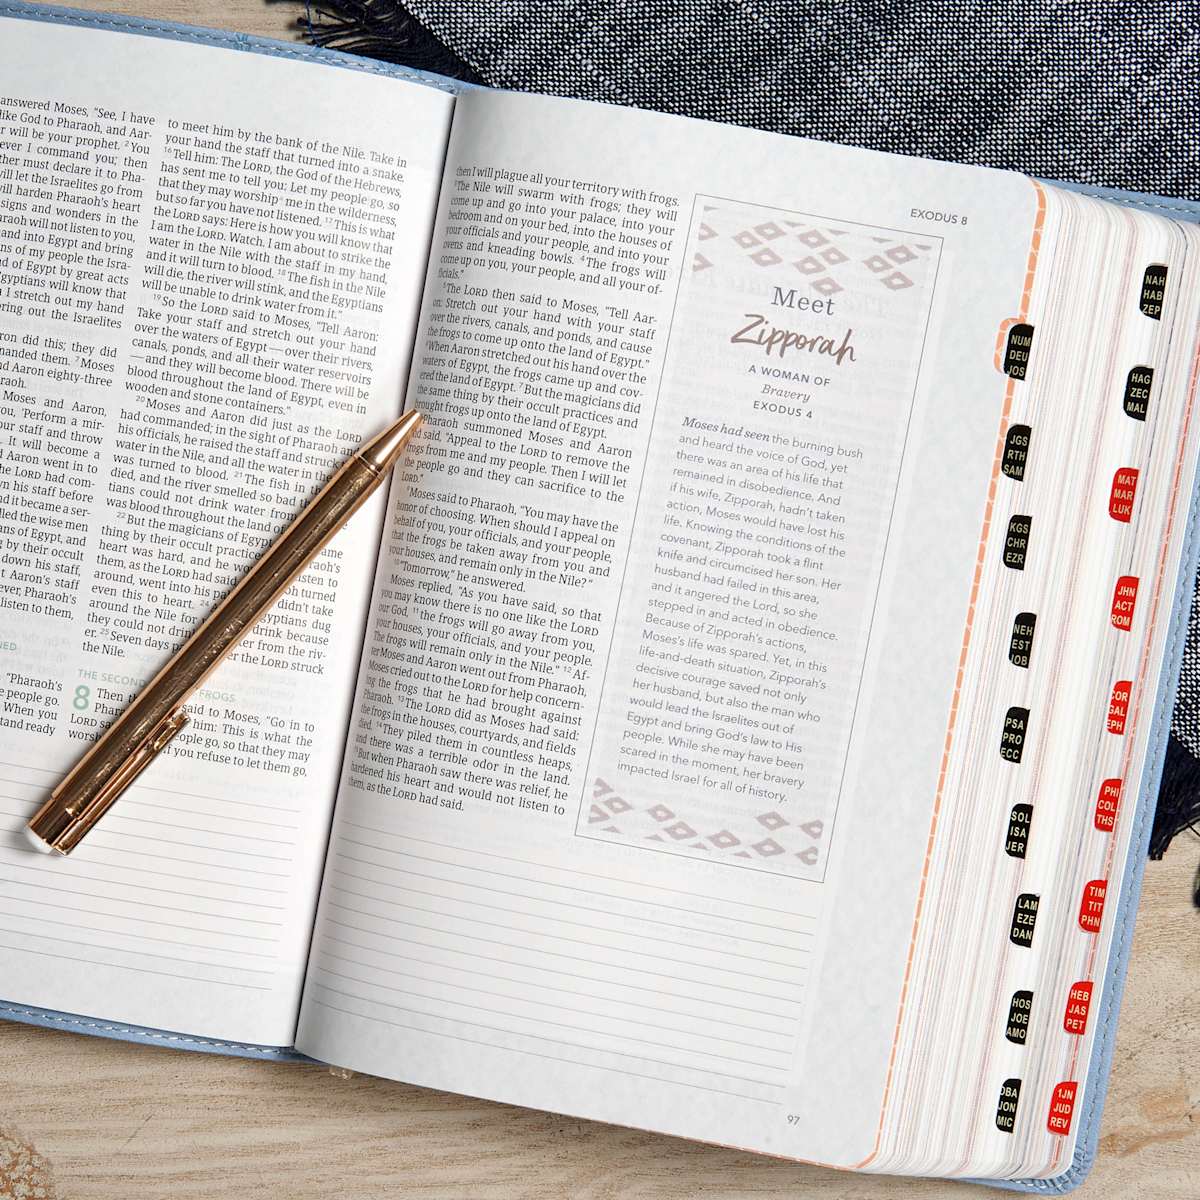 answered Moses, “See, I have
like God to Pharaoh, and Aar-
will be your prophet. 2 You
ever I command you; then
must declare it to Pha-
will let the Israelites go from
will harden Pharaoh’s heart
signs and wonders in the
Pharaoh will not listen to you,
hand into Egypt and bring
of my people the Isra-
of Egypt by great acts
Egyptians will know that
I stretch out my hand
bring out the Israelites
Aaron did this; they did
commanded them. 7 Moses
and Aaron eighty-three
Pharaoh.
Moses and Aaron,
you, ‘Perform a mir-
your staff and throw
It will become a
and Aaron went in to
the LORD had com-
down his staff before
and it became a ser-
called the wise men
of Egypt, and
by their occult
down his staff,
But Aaron’s staff
However, Pharaoh’s
listen to them,
“Pharaoh’s
people go.
When you
stand ready
to meet him by the bank of the Nile. Take in
your hand the staff that turned into a snake.
16 Tell him: The LORD, the God of the Hebrews,
has sent me to tell you: Let my people go, so
that they may worship me in the wilderness,
but so far you have not listened. 17 This is what
the LORD says: Here is how you will know that
I am the LORD. Watch. I am about to strike the
water in the Nile with the staff in my hand,
and it will turn to blood. 18 The fish in the Nile
will die, the river will stink, and the Egyptians
will be unable to drink water from it.”
19 So the LORD said to Moses, “Tell Aaron:
Take your staff and stretch out your hand
over the waters of Egypt—over their rivers,
canals, ponds, and all their water reservoirs
—and they will become blood. There will be
blood throughout the land of Egypt, even in
wooden and stone containers.”
20 Moses and Aaron did just as the LORD
had commanded; in the sight of Pharaoh and
his officials, he raised the staff and struck
water in the Nile, and all the water in the
was turned to blood. 21 The fish in the
died, and the river smelled so bad the
tians could not drink water from
was blood throughout the land of
22 But the magicians of Egypt same
thing by their occult practices
heart was hard, and he would listen to
them, as the LORD had said. turned
around, went into his palace didn’t take
even this to heart. 24 Egyptians dug
around the Nile for drink because
they could not drink water from the riv-
er. 25 Seven days after the LORD struck
the Nile.
THE SECOND FROGS
8 Then the LORD said to Moses, “Go in to
Pharaoh him: This is what the
LORD says: people go, so that they may
worship if you refuse to let them go,
EXODUS 8
then I will plague all your territory with frogs.
3 The Nile will swarm with frogs; they will
come up and go into your palace, into your
bedroom and on your bed, into the houses of
your officials and your people, and into your
ovens and kneading bowls. 4 The frogs will
come up on you, your people, and all your of-
ficials.”
5 The LORD then said to Moses, “Tell Aar-
on: Stretch out your hand with your staff
over the rivers, canals, and ponds, and cause
the frogs to come up onto the land of Egypt.”
6 When Aaron stretched out his hand over the
waters of Egypt, the frogs came up and cov-
ered the land of Egypt. 7 But the magicians did
the same thing by their occult practices and
brought frogs up onto the land of Egypt.
8 Pharaoh summoned Moses and Aaron
and said, “Appeal to the LORD to remove the
frogs from me and my people. Then I will let
the people go and they can sacrifice to the
LORD.”
9 Moses said to Pharaoh, “You may have the
honor of choosing. When should I appeal on
behalf of you, your officials, and your people,
that the frogs be taken away from you and
your houses, and remain only in the Nile?”
10 “Tomorrow,” he answered.
Moses replied, “As you have said, so that
you may know there is no one like the LORD
our God, 11 the frogs will go away from you,
your houses, your officials, and your people.
The frogs will remain only in the Nile.” 12 Af-
ter Moses and Aaron went out from Pharaoh,
Moses cried out to the LORD for help concern-
ing the frogs that he had brought against
Pharaoh. 13 The LORD did as Moses had said:
the frogs in the houses, courtyards, and fields
died. 14 They piled them in countless heaps,
and there was a terrible odor in the land.
15 But when Pharaoh saw there was relief, he
hardened his heart and would not listen to
them, as the LORD had said.
Meet
Zipporah
A WOMAN OF
Bravery
EXODUS 4
Moses had seen the burning bush
and heard the voice of God, yet
there was an area of his life that
remained in disobedience. And
if his wife, Zipporah, hadn’t taken
action, Moses would have lost his
life. Knowing the conditions of the
covenant, Zipporah took a flint
knife and circumcised her son. Her
husband had failed in this area,
and it angered the Lord, so she
stepped in and acted in obedience.
Because of Zipporah’s actions,
Moses’s life was spared. Yet, in this
life-and-death situation, Zipporah’s
decisive courage saved not only
her husband, but also the man who
would lead the Israelites out of
Egypt and bring God’s law to His
people. While she may have been
scared in the moment, her bravery
impacted Israel for all of history.
97
NUM
DEU
JOS
JGS
RTH
SAM
KGS
CHR
EZR
NEH
EST
JOB
PSA
PRO
ECC
SOL
ISA
JER
LAM
EZE
DAN
HOS
JOE
AMO
OBA
JON
MIC
NAH
HAB
ZEP
HAG
ZEC
MAL
MAT
MAR
LUK
JHN
ACT
ROM
COR
GAL
EPH
PHI
COL
THS
TIM
TIT
PHN
HEB
JAS
PET
1JN
JUD
REV